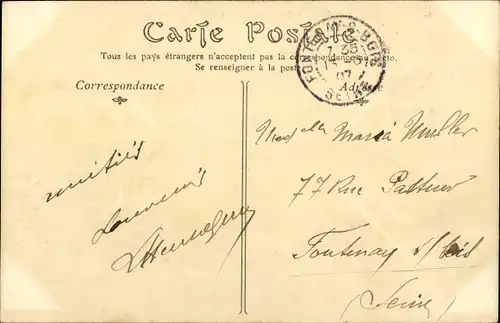 Carte Postale
Tous les pays étrangers n'acceptent pas la correspondance au recto.
Se renseigner à la poste
Correspondance
Adresse
FONTENAY-S-BOIS
7 35
07
SEINE
amitiés
Souvenirs
Maria Muller
77 Rue Pasteur
Fontenay s/ Bois
(Seine)